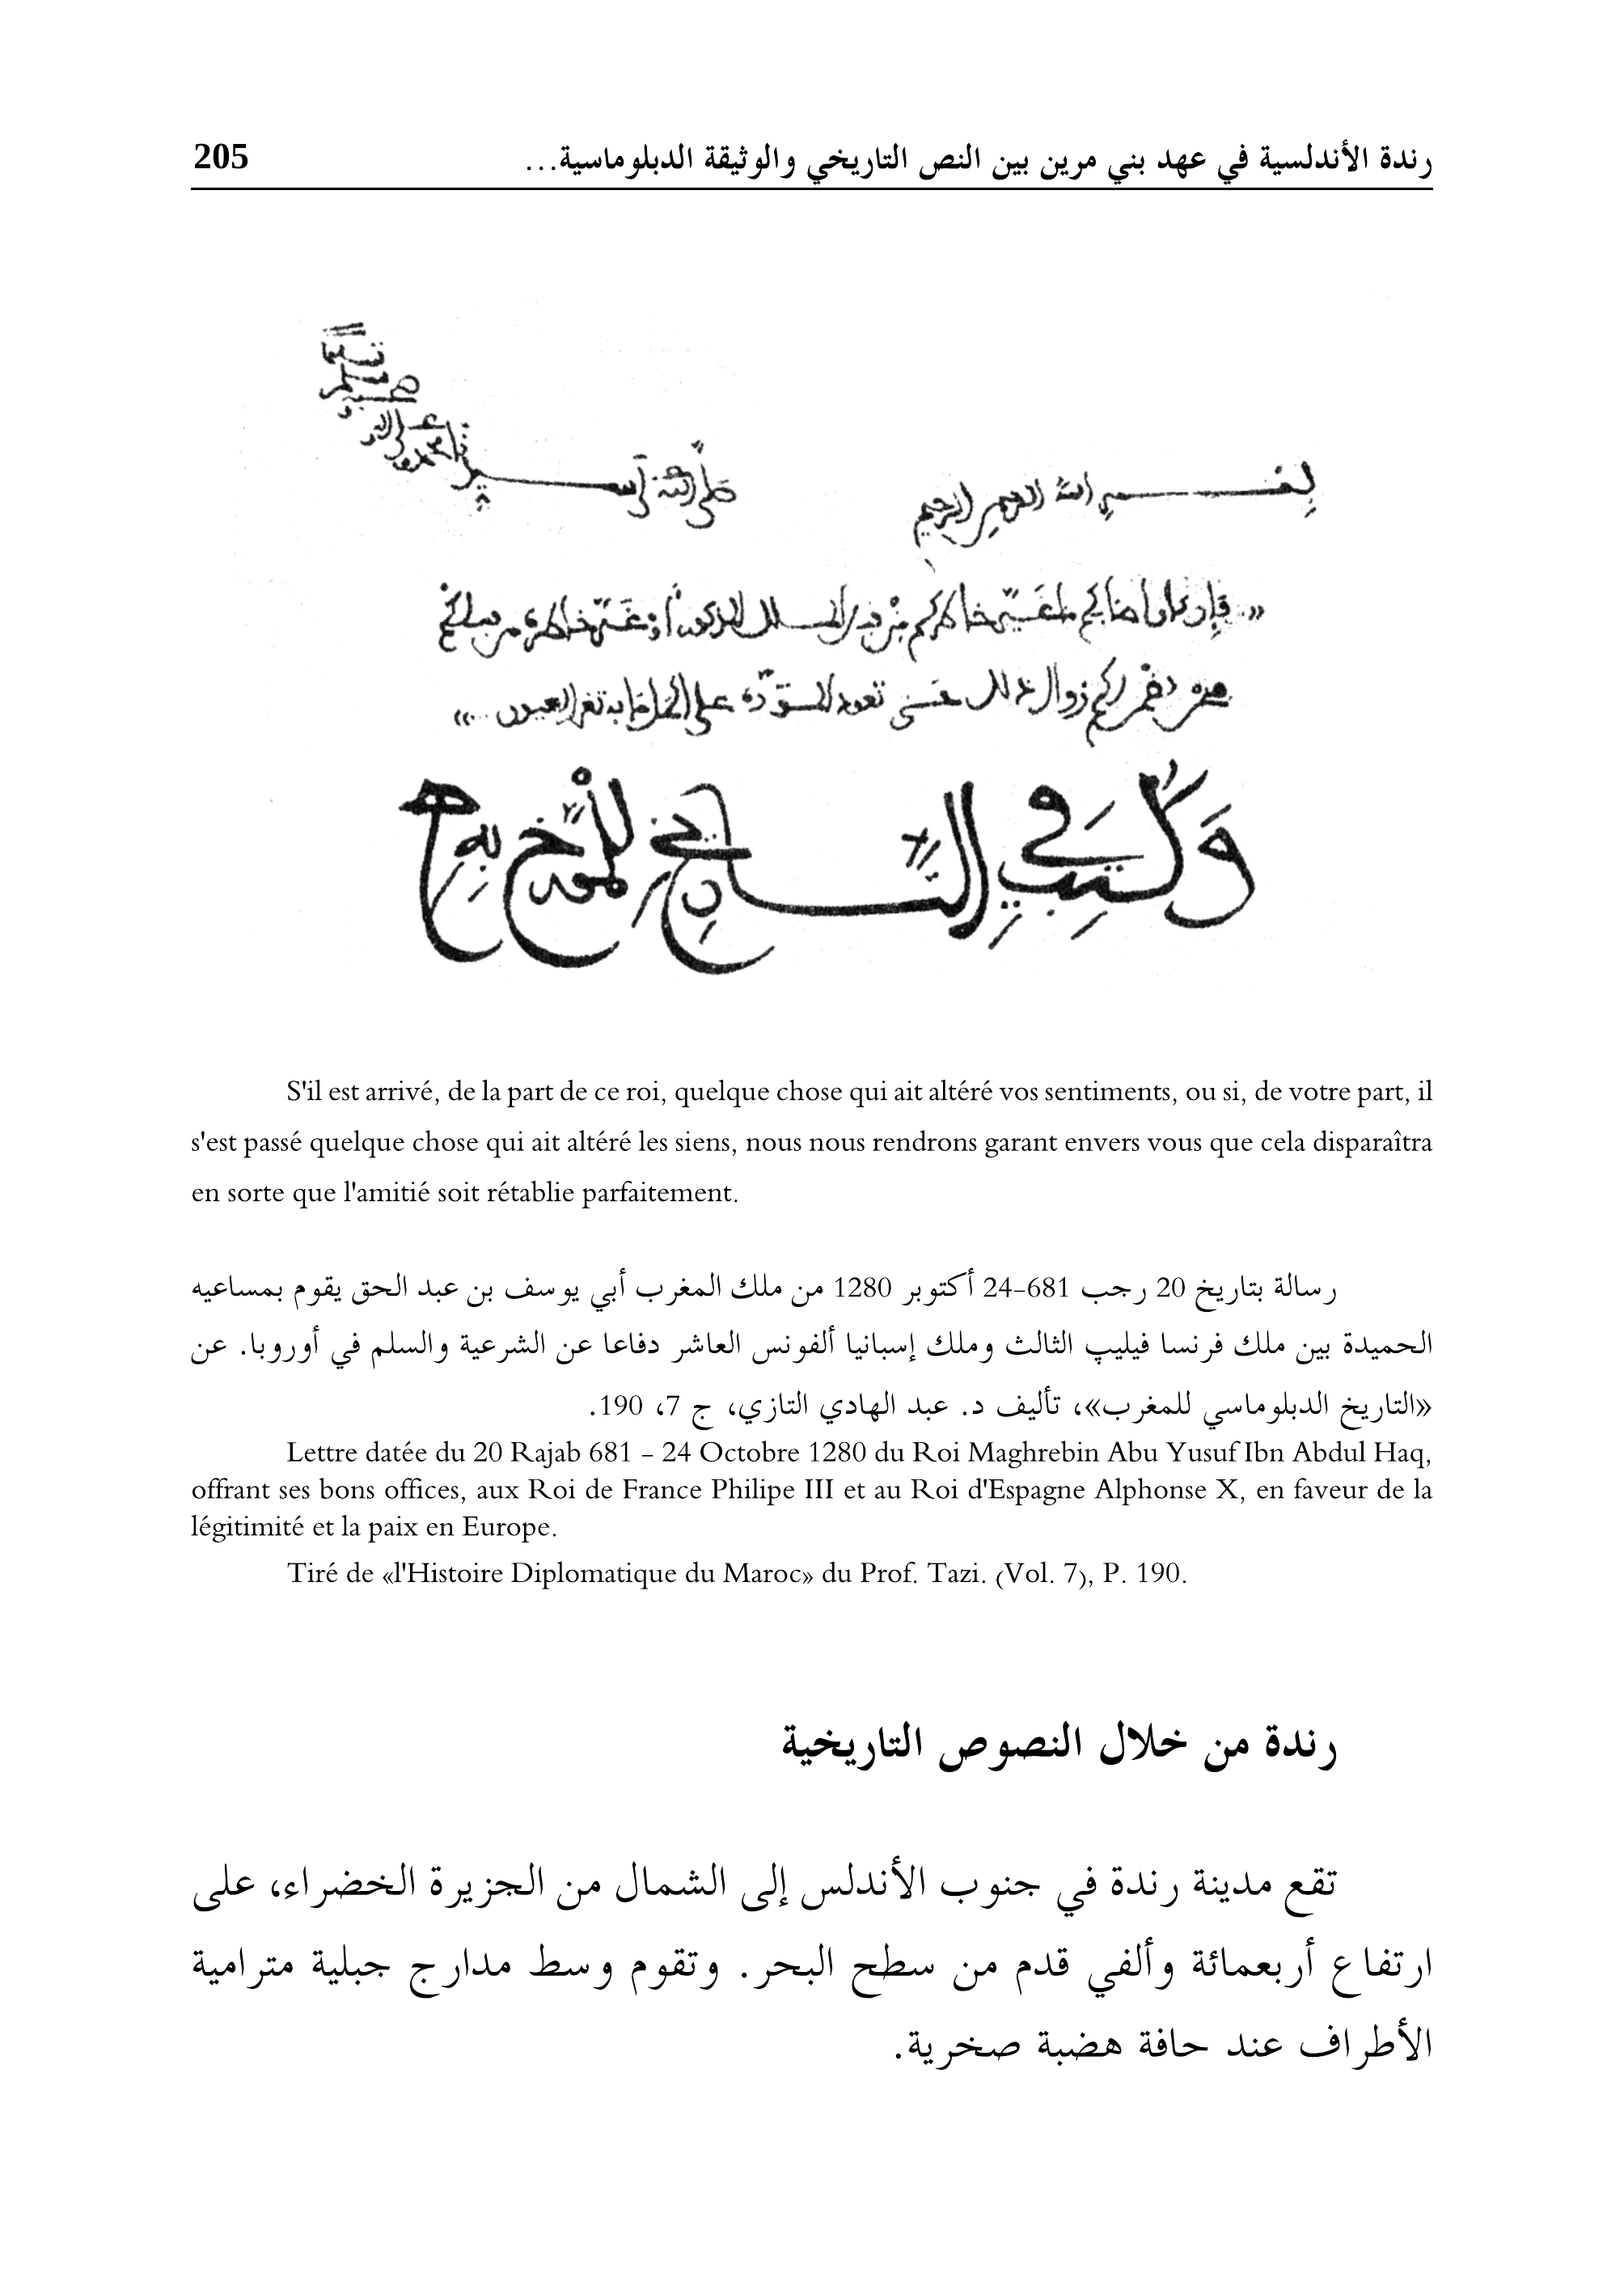 رندة الأندلسية في عهد بني مرين بين النص التاريخي والوثيقة الدبلوماسية... 205
بسم الله الرحمن الرحيم صلى الله على سيدنا محمد وعلى آله وصحبه وسلم تسليما
زوال ذلك حتى تعود المودة على
وكتب في التاريخ المؤرخ به
S'il est arrivé, de la part de ce roi, quelque chose qui ait altéré vos sentiments, ou si, de votre part, il
s'est passé quelque chose qui ait altéré les siens, nous nous rendrons garant envers vous que cela disparaîtra
en sorte que l'amitié soit rétablie parfaitement.
رسالة بتاريخ 20 رجب 681-24 أكتوبر 1280 من ملك المغرب أبي يوسف بن عبد الحق يقوم بمساعيه
الحميدة بين ملك فرنسا فيليپ الثالث وملك إسبانيا ألفونس العاشر دفاعا عن الشرعية والسلم في أوروبا. عن
«التاريخ الدبلوماسي للمغرب»، تأليف د. عبد الهادي التازي، ج 7، 190.
Lettre datée du 20 Rajab 681 – 24 Octobre 1280 du Roi Maghrebin Abu Yusuf Ibn Abdul Haq,
offrant ses bons offices, aux Roi de France Philipe III et au Roi d'Espagne Alphonse X, en faveur de la
légitimité et la paix en Europe.
Tiré de «l'Histoire Diplomatique du Maroc» du Prof. Tazi. (Vol. 7), P. 190.
رندة من خلال النصوص التاريخية
تقع مدينة رندة في جنوب الأندلس إلى الشمال من الجزيرة الخضراء، على
ارتفاع أربعمائة وألفي قدم من سطح البحر. وتقوم وسط مدارج جبلية مترامية
الأطراف عند حافة هضبة صخرية.